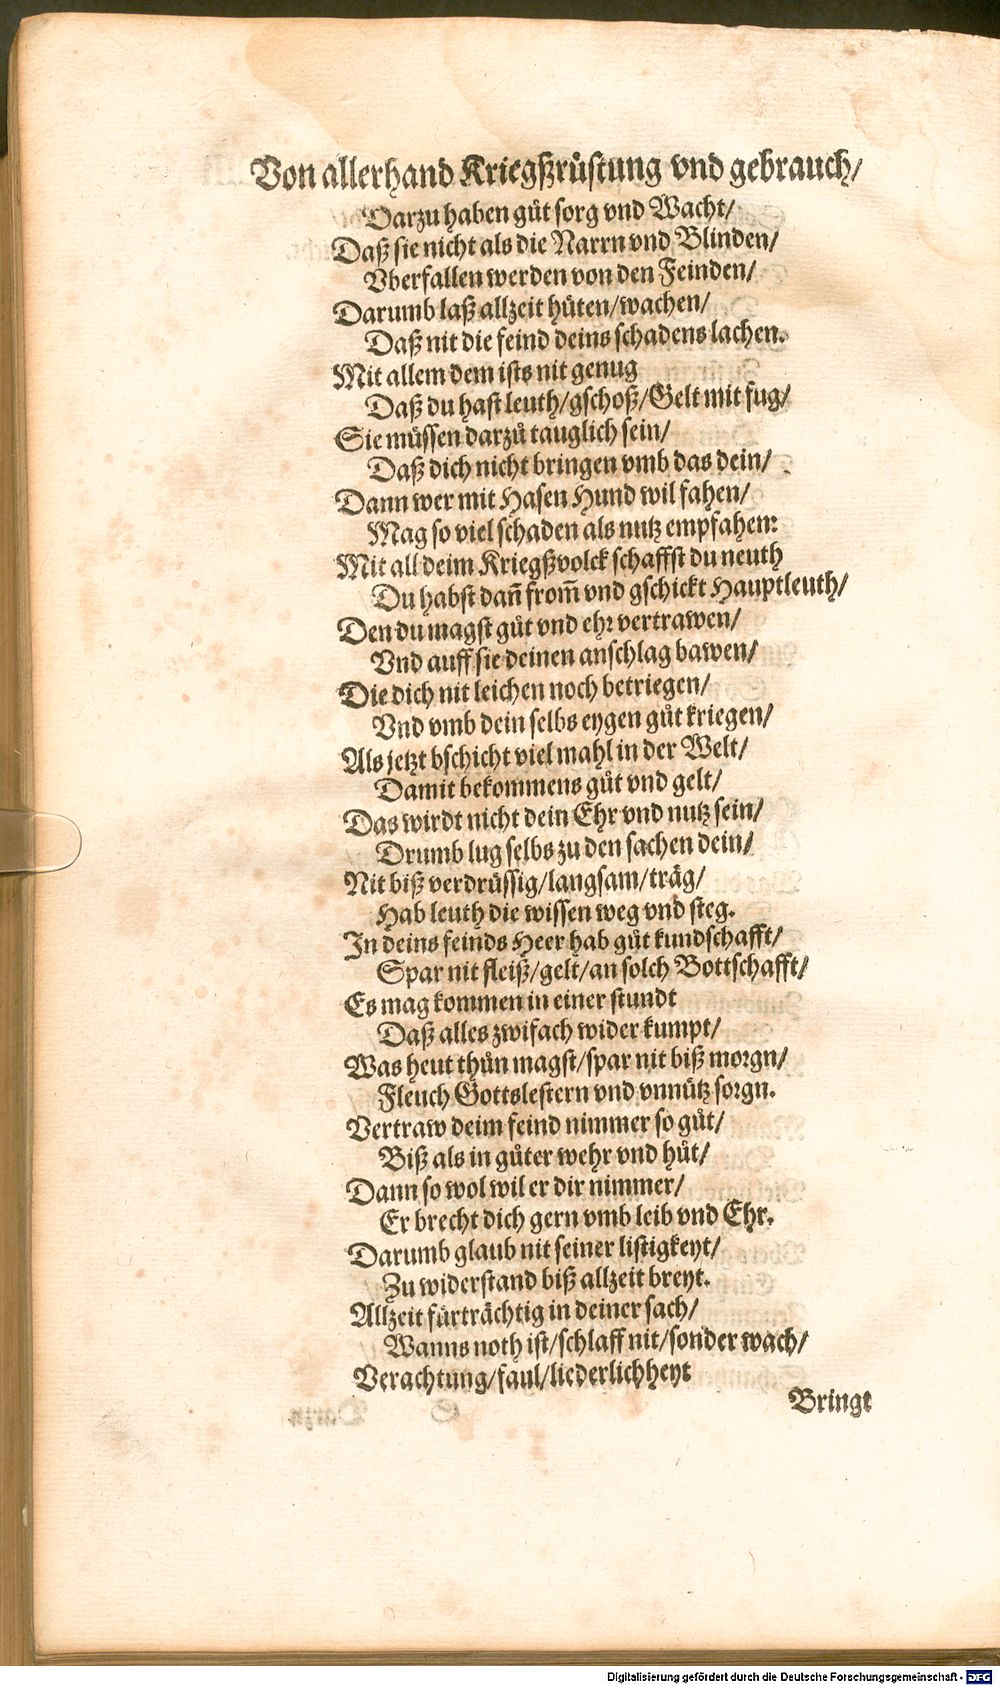 Von allerhand Kriegßrüstung vnd gebrauch/
Darzu haben gůt sorg vnd Wacht/
Daß sie nicht als die Narrn vnd Blinden/
Vberfallen werden von den Feinden/
Darumb laß allzeit hüten/wachen/
Daß nit die feind deins schadens lachen.
Mit allem dem ists nit genug
Daß du hast leuth/gschoß/Gelt mit fug/
Sie müssen darzů tauglich sein/
Daß dich nicht bringen vmb das dein/
Dann wer mit Hasen Hund wil fahen/
Mag so viel schaden als nutz empfahen:
Mit all deim Kriegßvolck schaffst du neuth
Du habst dañ from̃ vnd gschickt Hauptleuth/
Den du magst gůt vnd ehr vertrawen/
Vnd auff sie deinen anschlag bawen/
Die dich nit leichen noch betriegen/
Vnd vmb dein selbs eygen gůt kriegen/
Als jetzt bschicht viel mahl in der Welt/
Damit bekommens gůt vnd gelt/
Das wirdt nicht dein Ehr vnd nutz sein/
Drumb lug selbs zu den sachen dein/
Nit biß verdrüssig/langsam/träg/
Hab leuth die wissen weg vnd steg.
In deins feinds Heer hab gůt kundschafft/
Spar nit fleiß/gelt/an solch Bottschafft/
Es mag kommen in einer stundt
Daß alles zwifach wider kumpt/
Was heut thůn magst/spar nit biß morgn/
Fleuch Gottslestern vnd vnnütz sorgn.
Vertraw deim feind nimmer so gůt/
Biß als in gůter wehr vnd hůt/
Dann so wol wil er dir nimmer/
Er brecht dich gern vmb leib vnd Ehr.
Darumb glaub nit seiner listigkeyt/
Zu widerstand biß allzeit breyt.
Allzeit fürträchtig in deiner sach/
Wanns noth ist/schlaff nit/sonder wach/
Verachtung/faul/liederlichheyt
Bringt
Digitalisierung gefördert durch die Deutsche Forschungsgemeinschaft - DFG